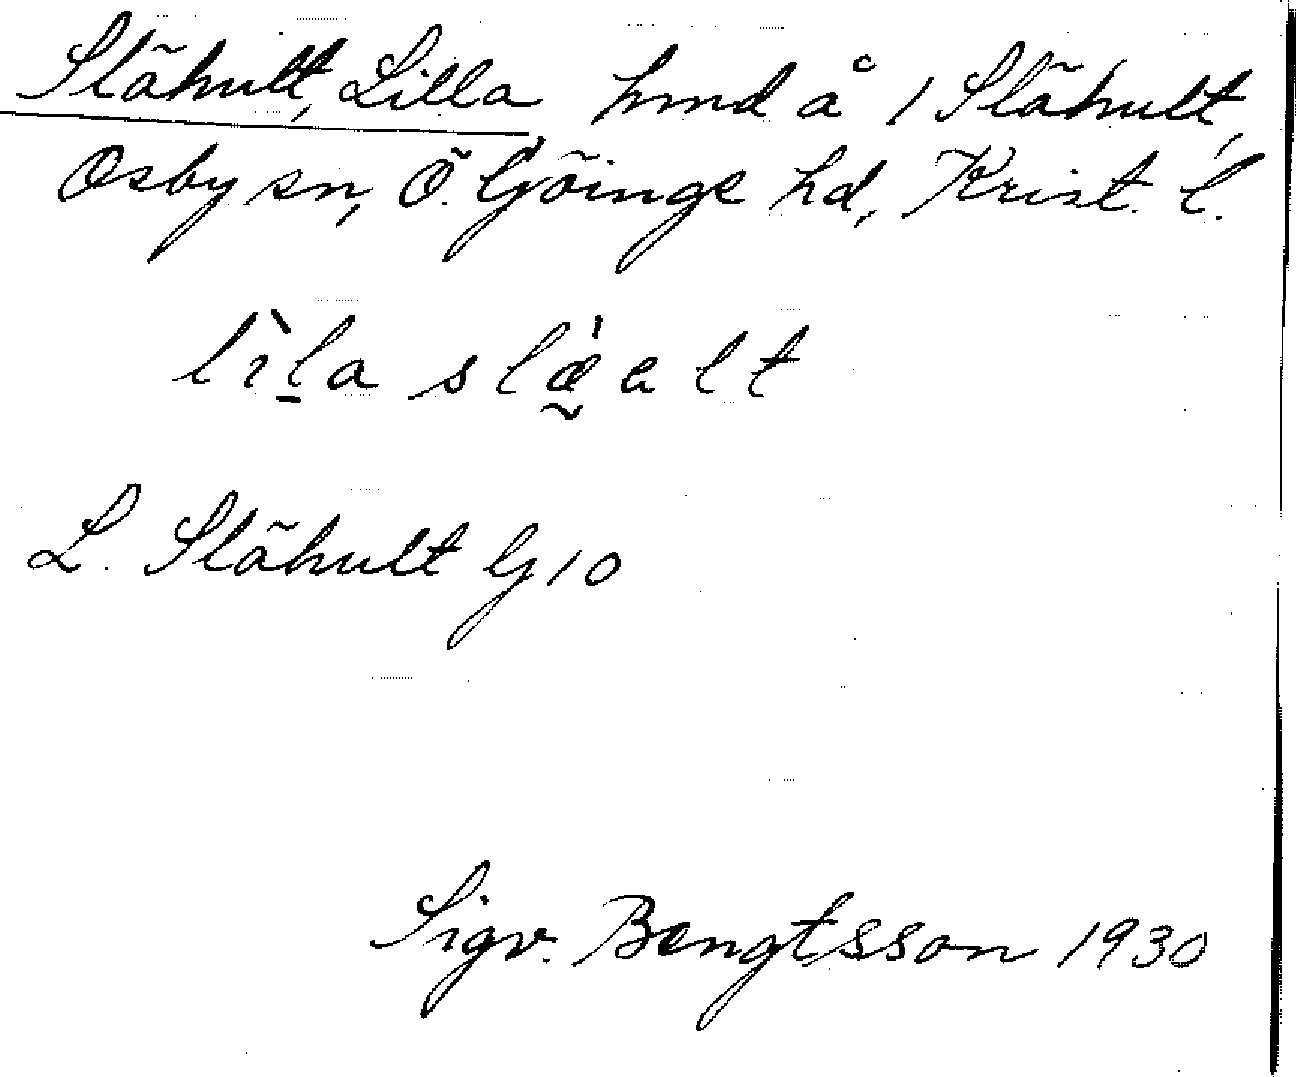 Slähult, Lilla hmd å 1 Slähult,
Osby sn, Ö. Göinge hd, Krist. l.
lìla slǽ̰alt
L. Slähult G10
Sigv. Bengtsson 1930